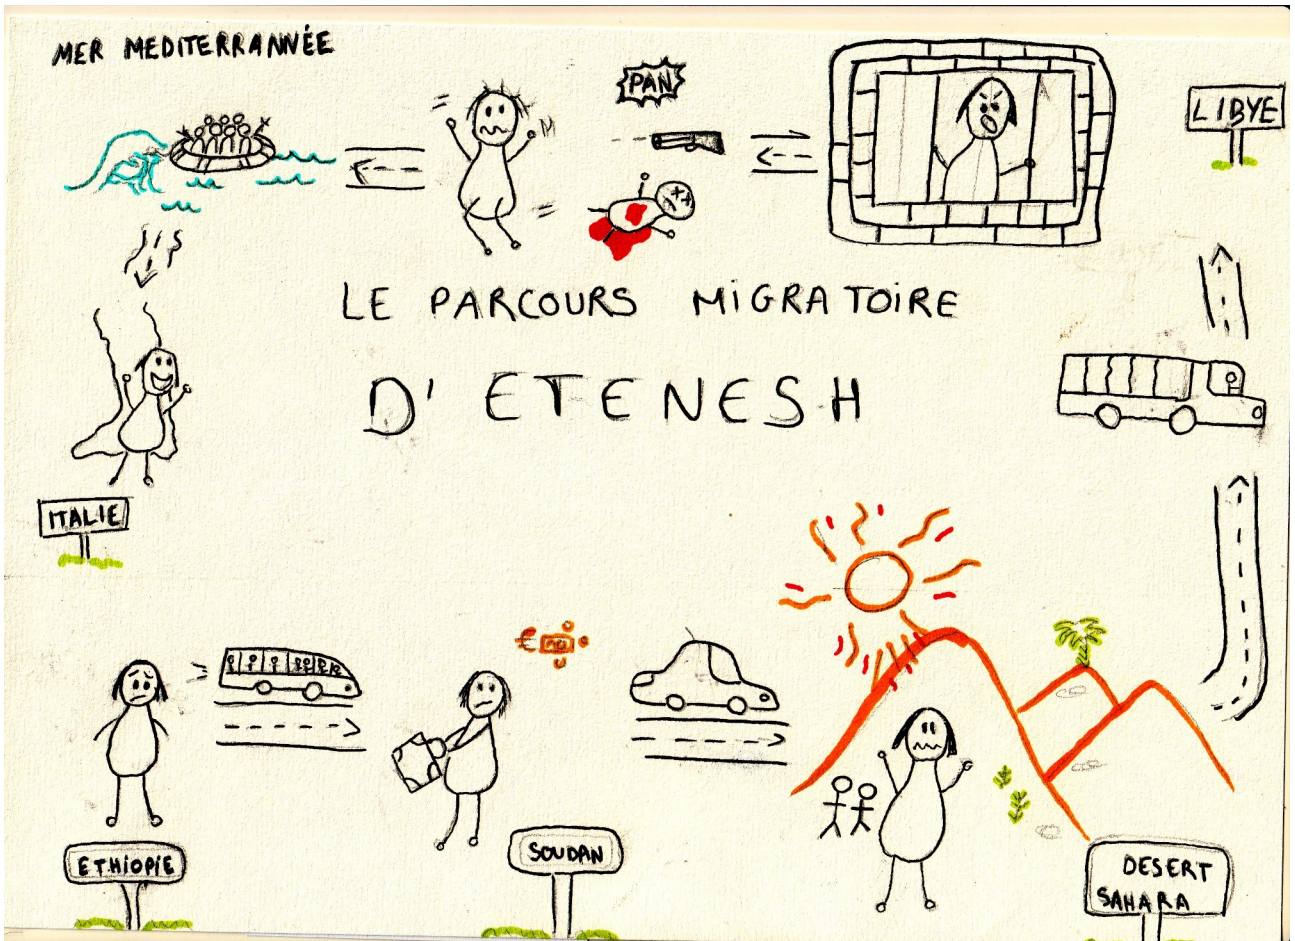 MER MEDITERRANNÉE
PAN
LIBYE
LE PARCOURS MIGRATOIRE
D' ETENESH
ITALIE
€
ETHIOPIE
SOUDAN
DESERT
SAHARA